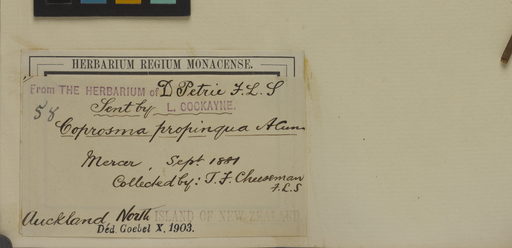 HERBARIUM REGIUM MONACENSE.
From THE HERBARIUM of D Petrie F.L.S
Sent by L. COCKAYNE.
58
Coprosma propinqua A Cun.
Mercer, Sept 1881
Collected by: T. F. Cheeseman
F.L.S
Auckland, North ISLAND OF NEW ZEALAND
Ded. Goebel X. 1903.